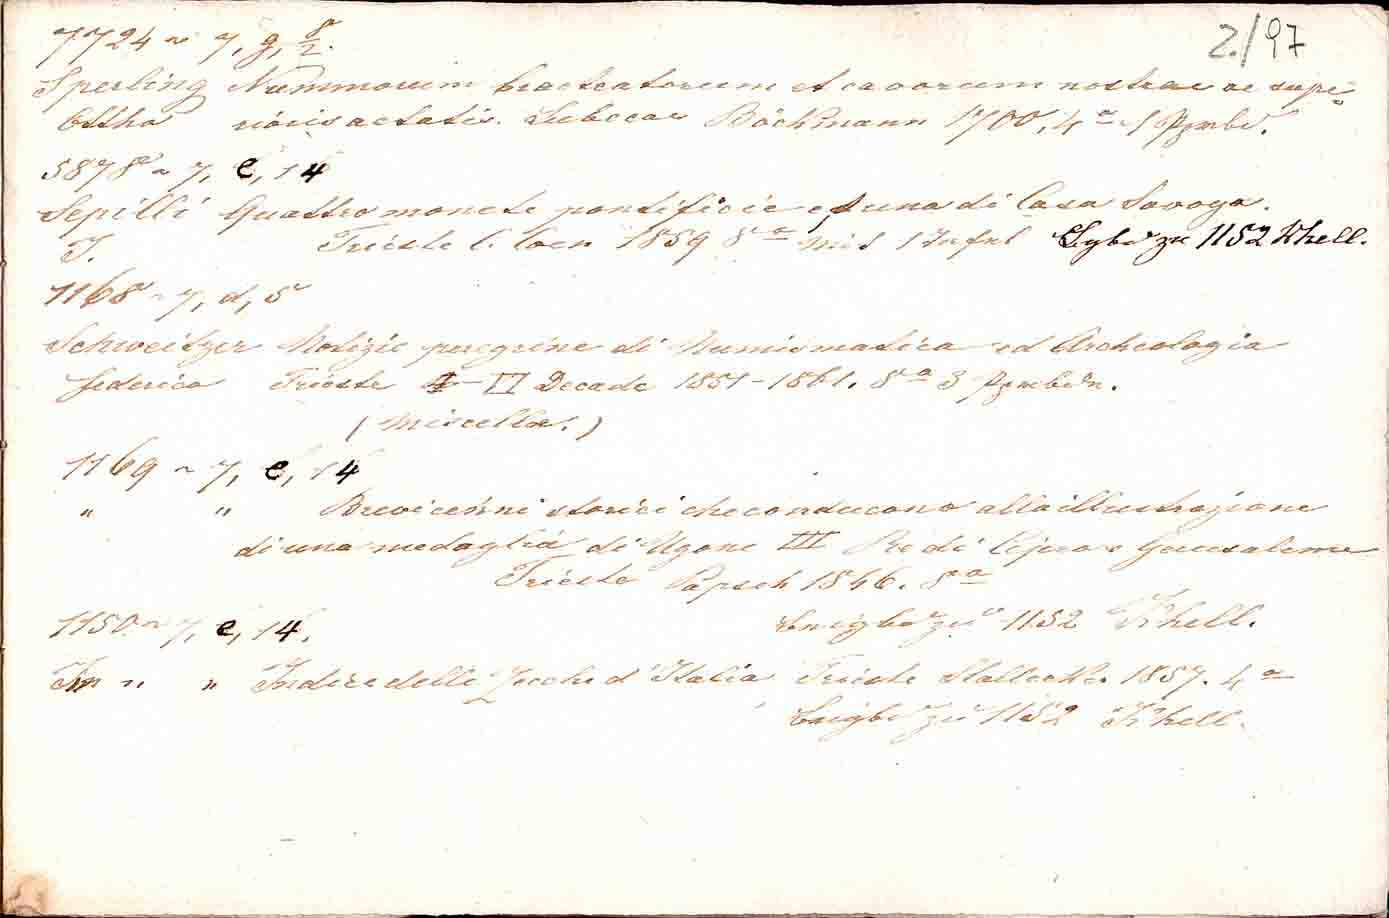 2./97
7724 ~ 7, g, 8/2.
Sperling Nummorum bracteatorum et cavorum nostrae ac supe=
Ottho rioris aetatis. Lubecae Böckmann 1700. 4º 1 Ppmbd.
5878 ~ 7, e, 14
Sepilli Quattro monete pontificie ed una di Casa Savoya.
T. Trieste C. Coen 1859 8º mit 1 Tafel Beygb. zu 1152 Khell.
1168 ~ 7, d, 5
Schweitzer Notizie peregrine di Numismatica ed Archeologia
Federico Trieste I-II Decade 1851-1861. 8º 3 Ppmbdn.
(Miscellae.)
1169 ~ 7, e, 14
" " Brevi cenni storici che conducono alla illustrazione
di una medaglia di Ugone III Re di Cipro e Gerusaleme
Trieste Papsch 1846. 8º
Beigbd zu 1152 Khell.
1150 ~ 7, e, 14.
" " Indice delle Zecche d'Italia Trieste 1857. 4º
Beigbd zu 1152 Khell.